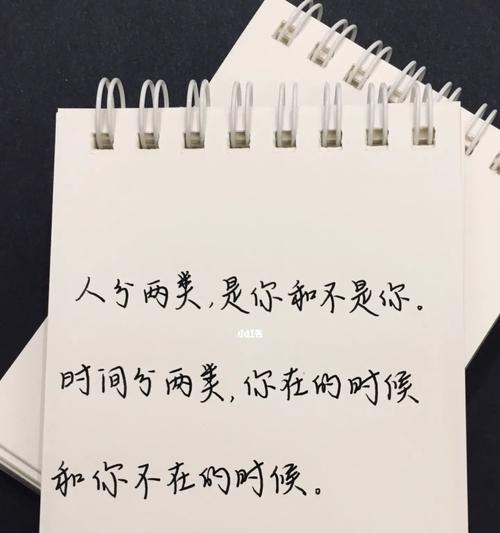 人分两类，是你和不是你。
小红书
时间分两类，你在的时候
和你不在的时候。